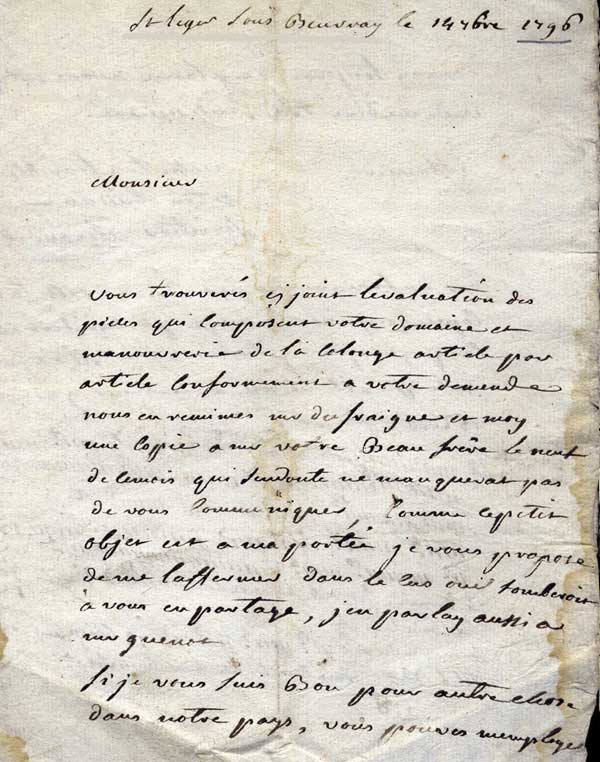 St leger Sous Beuvray le 14 7bre 1796
Monsieur
vous trouverés cy joint levaluation des
pieces qui composent votre domaine et
manouvrerie de la Celonge article par
article Conformement a votre demende
nous en remimes mr du fraigne et moy
une Copie a mr votre Beau frere le neuf
de cemois qui sendoute ne manquerat pas
de vous Communiquer, Comme cepetit
objet est a ma portée je vous propose
de me laffermer dans le Cas ou il tomberoit
à vous en partage, jen parlay aussi a
mr quenot
Si je vous Suis Bon pour autre chose
dans notre pays, vous pouves memployer